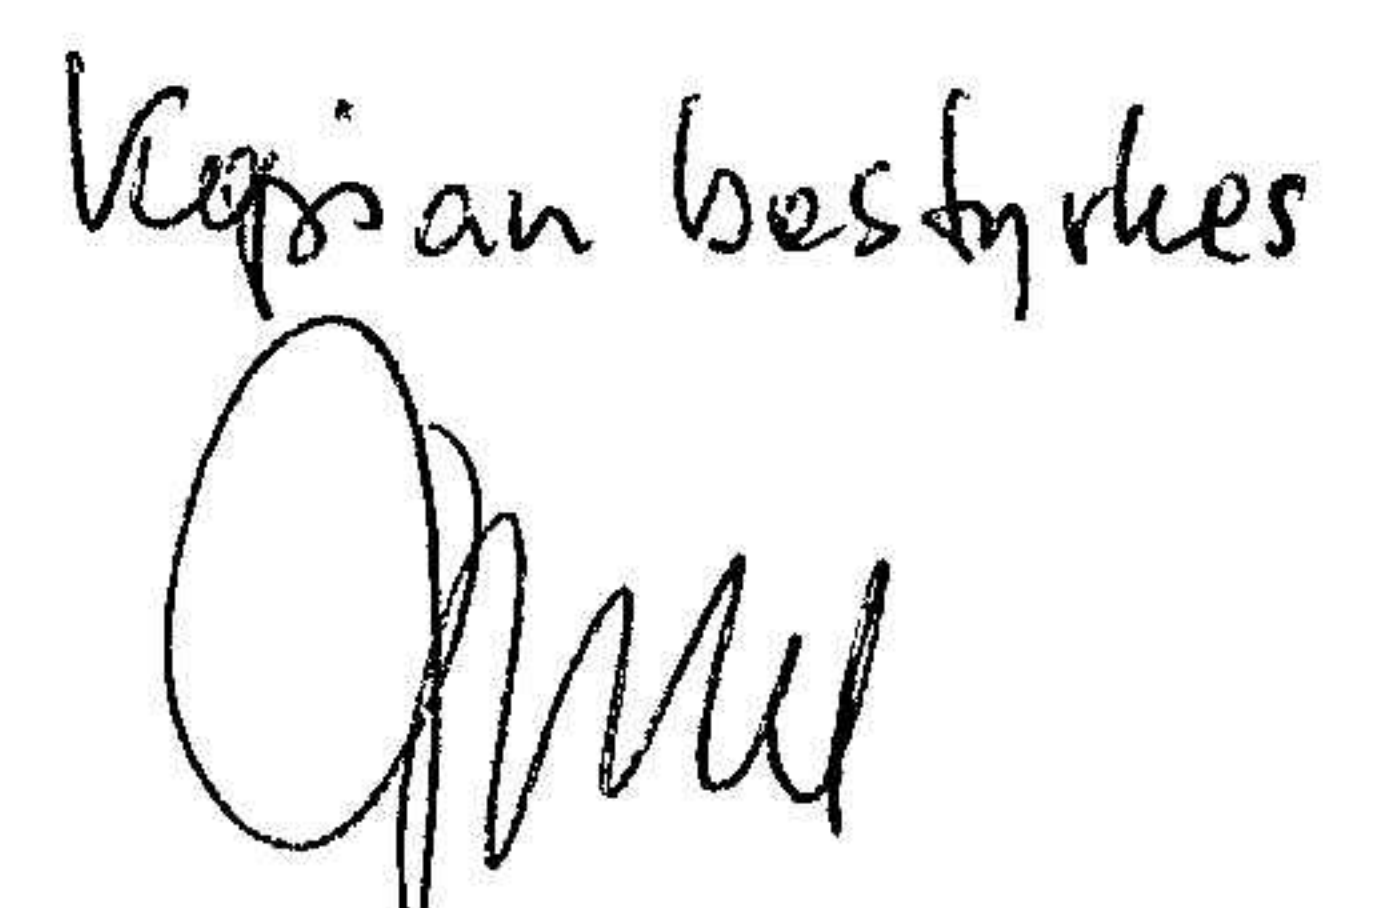 Kopian bestyrkes